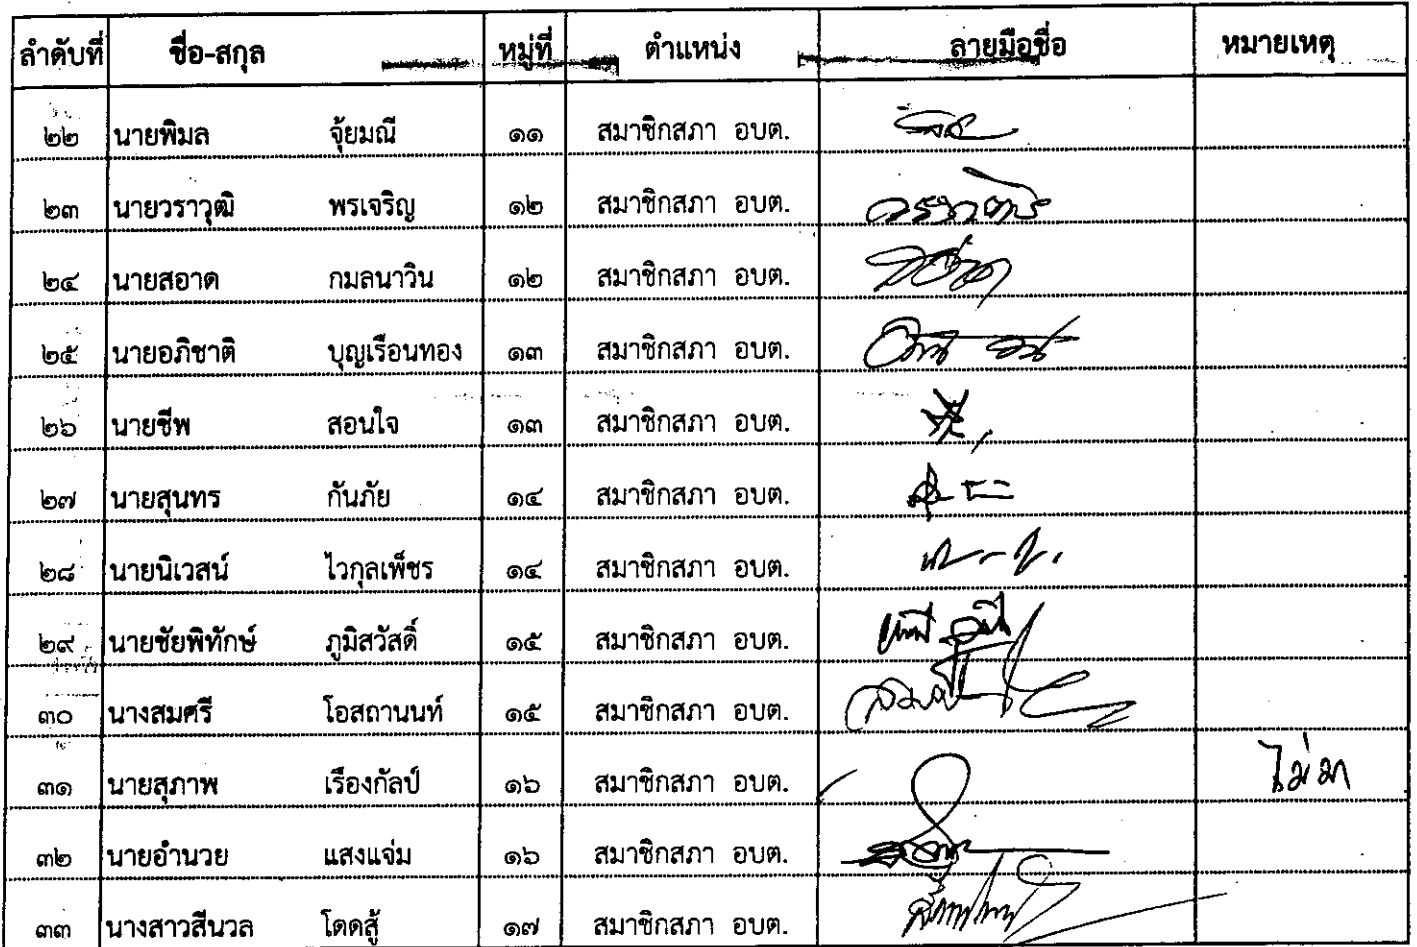 ลำดับที่ ชื่อ-สกุล หมู่ที่ ตำแหน่ง ลายมือชื่อ หมายเหตุ
๒๒ นายพิมล จุ้ยมณี ๑๑ สมาชิกสภา อบต.
๒๓ นายวราวุฒิ พรเจริญ ๑๒ สมาชิกสภา อบต.
๒๔ นายสอาด กมลนาวิน ๑๒ สมาชิกสภา อบต.
๒๕ นายอภิชาติ บุญเรือนทอง ๑๓ สมาชิกสภา อบต.
๒๖ นายชีพ สอนใจ ๑๓ สมาชิกสภา อบต.
๒๗ นายสุนทร กันภัย ๑๔ สมาชิกสภา อบต.
๒๘ นายนิเวสน์ ไวกุลเพ็ชร ๑๔ สมาชิกสภา อบต.
๒๙ นายชัยพิทักษ์ ภูมิสวัสดิ์ ๑๕ สมาชิกสภา อบต.
๓๐ นางสมศรี โอสถานนท์ ๑๕ สมาชิกสภา อบต.
๓๑ นายสุภาพ เรืองกัลป์ ๑๖ สมาชิกสภา อบต. ไม่มา
๓๒ นายอำนวย แสงแจ่ม ๑๖ สมาชิกสภา อบต.
๓๓ นางสาวสีนวล โดดสู้ ๑๗ สมาชิกสภา อบต.